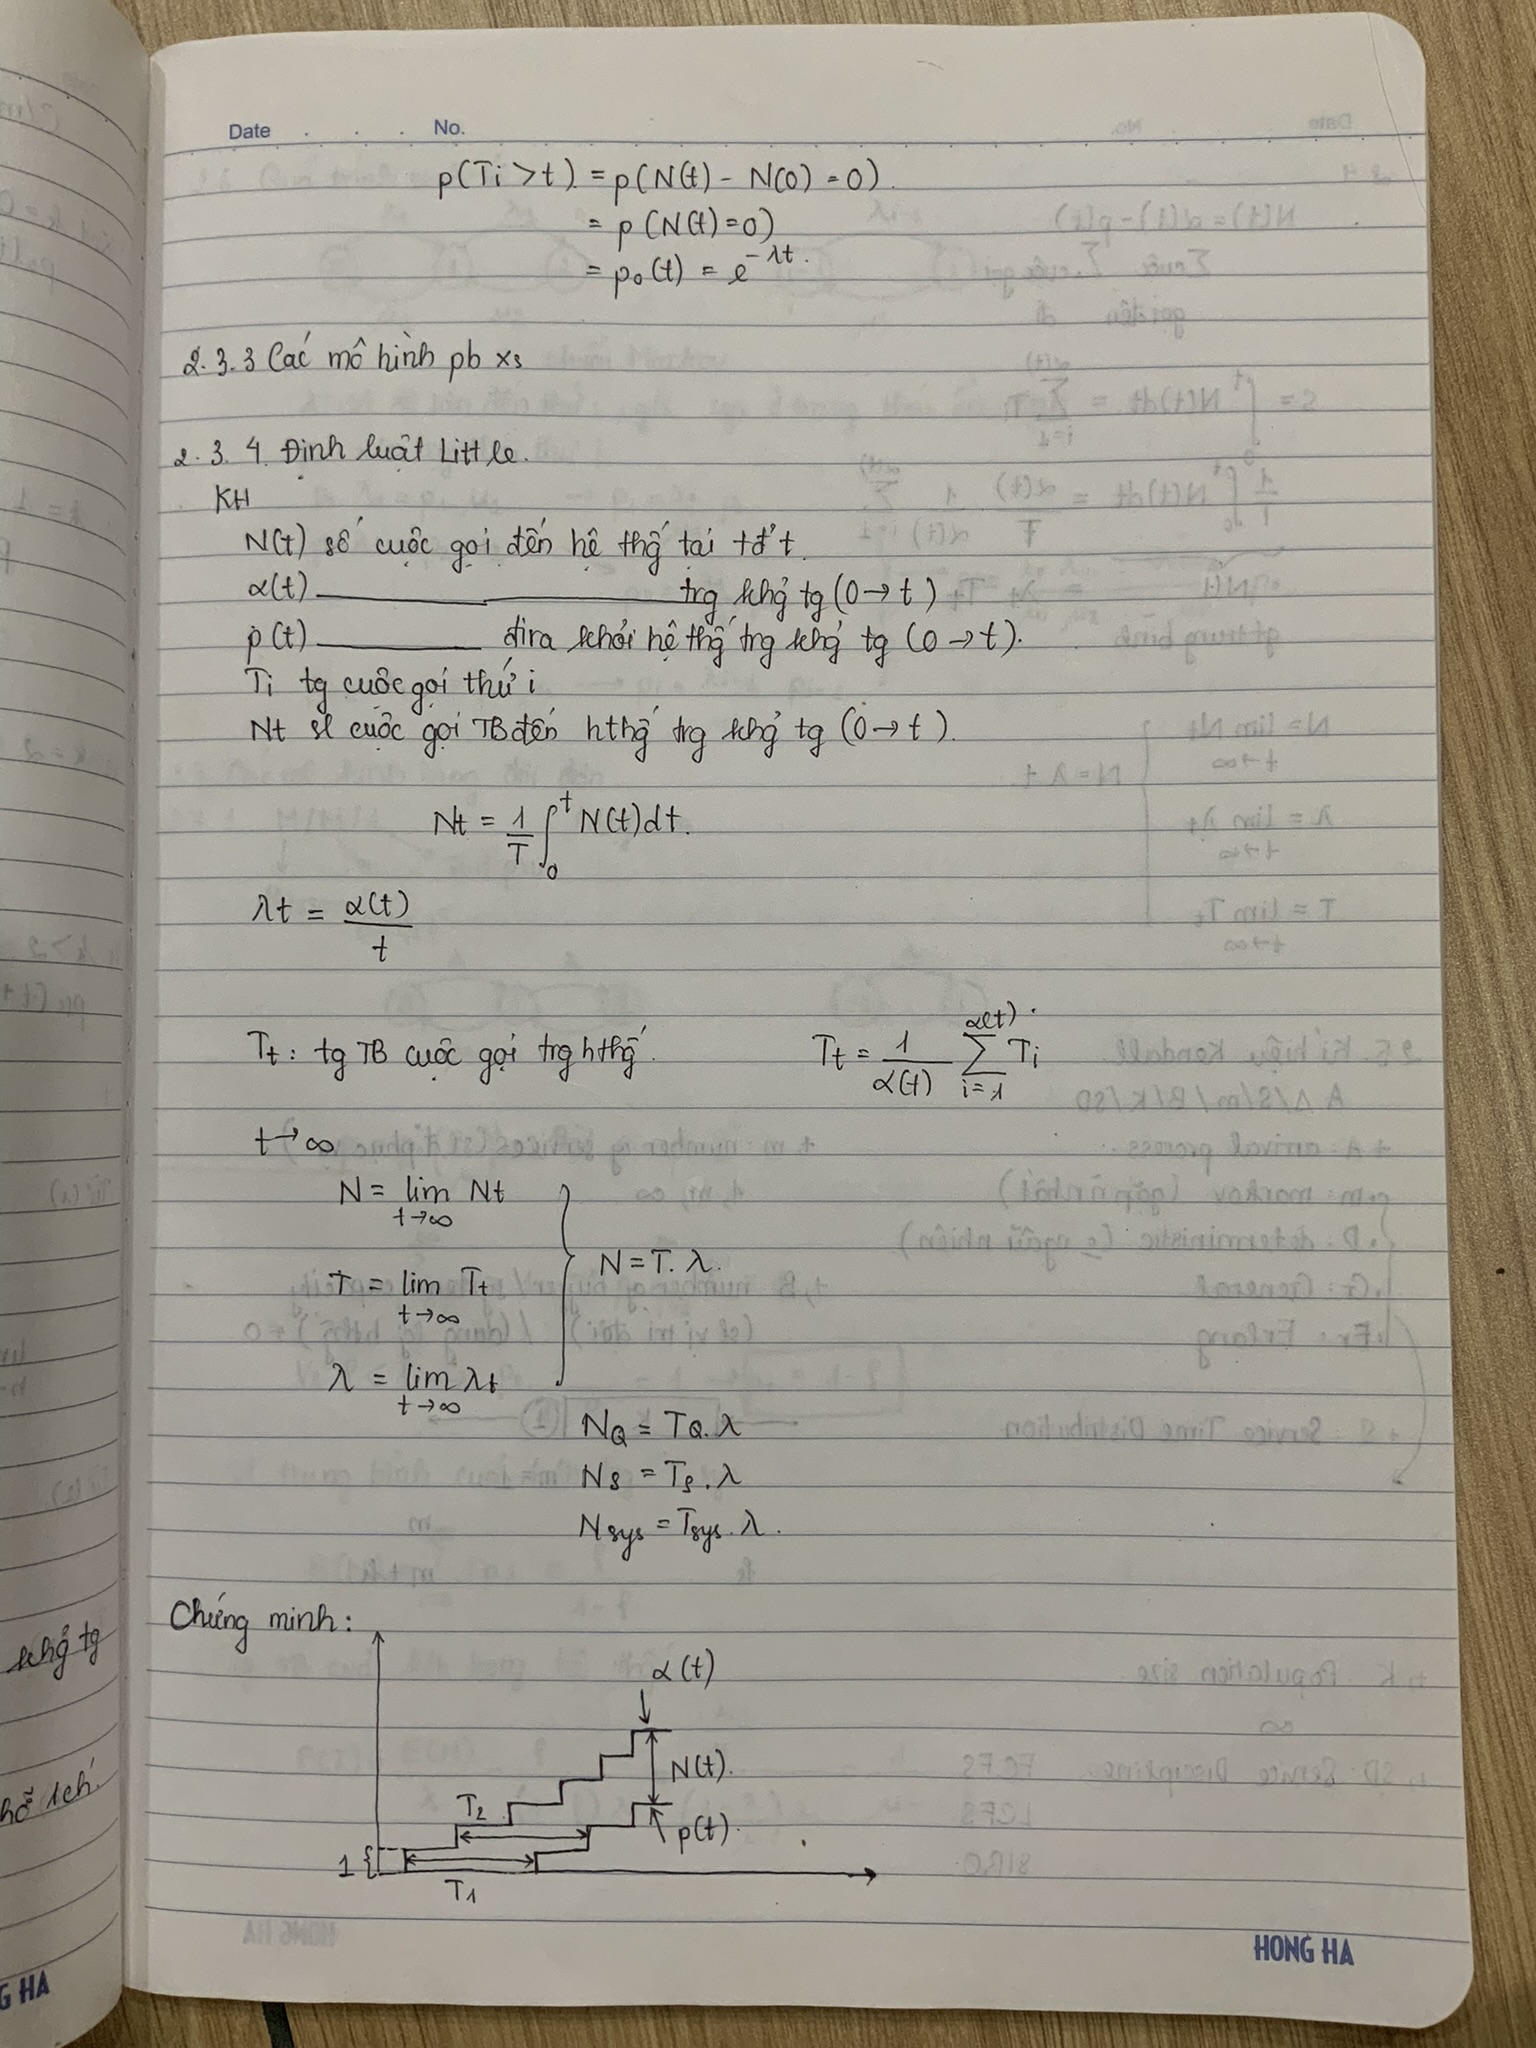 Date . . . No.
p(Ti > t) = p(N(t) - N(0) = 0)
= p(N(t) = 0)
= p₀(t) = e^{-λt}.
2.3.3 Các mô hình pb xs
2.3.4. Định luật Little.
KH
N(t) số cuộc gọi đến hệ thố́g tại tđ' t.
α(t) ______ trg khg̉ tg (0→t)
p(t) ______ đi ra khỏi hệ thố́g trg khg̉ tg (0→t).
Ti tg cuộc gọi thứ i
Nt sl cuộc gọi TB đến hthố́g trg khg̉ tg (0→t).
Nt = 1/T ∫₀^t N(t)dt.
λt = α(t)/t
Tt: tg TB cuộc gọi trg hthố́g. Tt = 1/α(t) ∑_{i=1}^{α(t)} Ti
t→∞
N = lim_{t→∞} Nt
N = T.λ.
T = lim_{t→∞} Tt
λ = lim_{t→∞} λt
N_Q = T_Q.λ
N_S = T_S.λ
N_sys = T_sys.λ.
Chứng minh:
α(t)
N(t).
T₂
p(t).
1
T₁
khg̉ tg
HONG HA
G HA